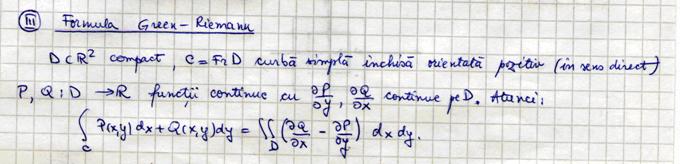 III Formula Green-Riemann
D⊂R² compact, C = Fr D curbă simplă închisă orientată pozitiv (în sens direct)
P, Q : D → R funcții continue cu ∂P/∂y, ∂Q/∂x continue pe D. Atunci:
∫_C P(x,y) dx + Q(x,y) dy = ∬_D (∂Q/∂x - ∂P/∂y) dx dy.